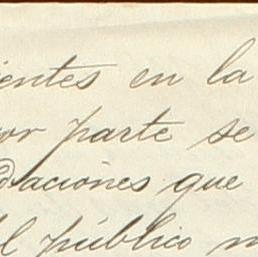 ientes en la
or parte se
daciones que
l público